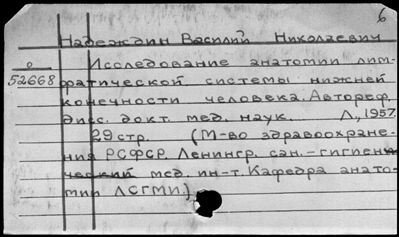 б
Надеждин Василий Николаевич
Исследование анатомии лим-
о
52668
фатической системы нижней
конечности человека. Автореф.
дисс. докт. мед. наук. Л, 1957.
29 стр. (М-во здравоохране-
ния РСФСР. Ленингр. сан.-гигиени-
ческий мед. ин-т. Кафедра анато-
мии ЛСГМИ.)